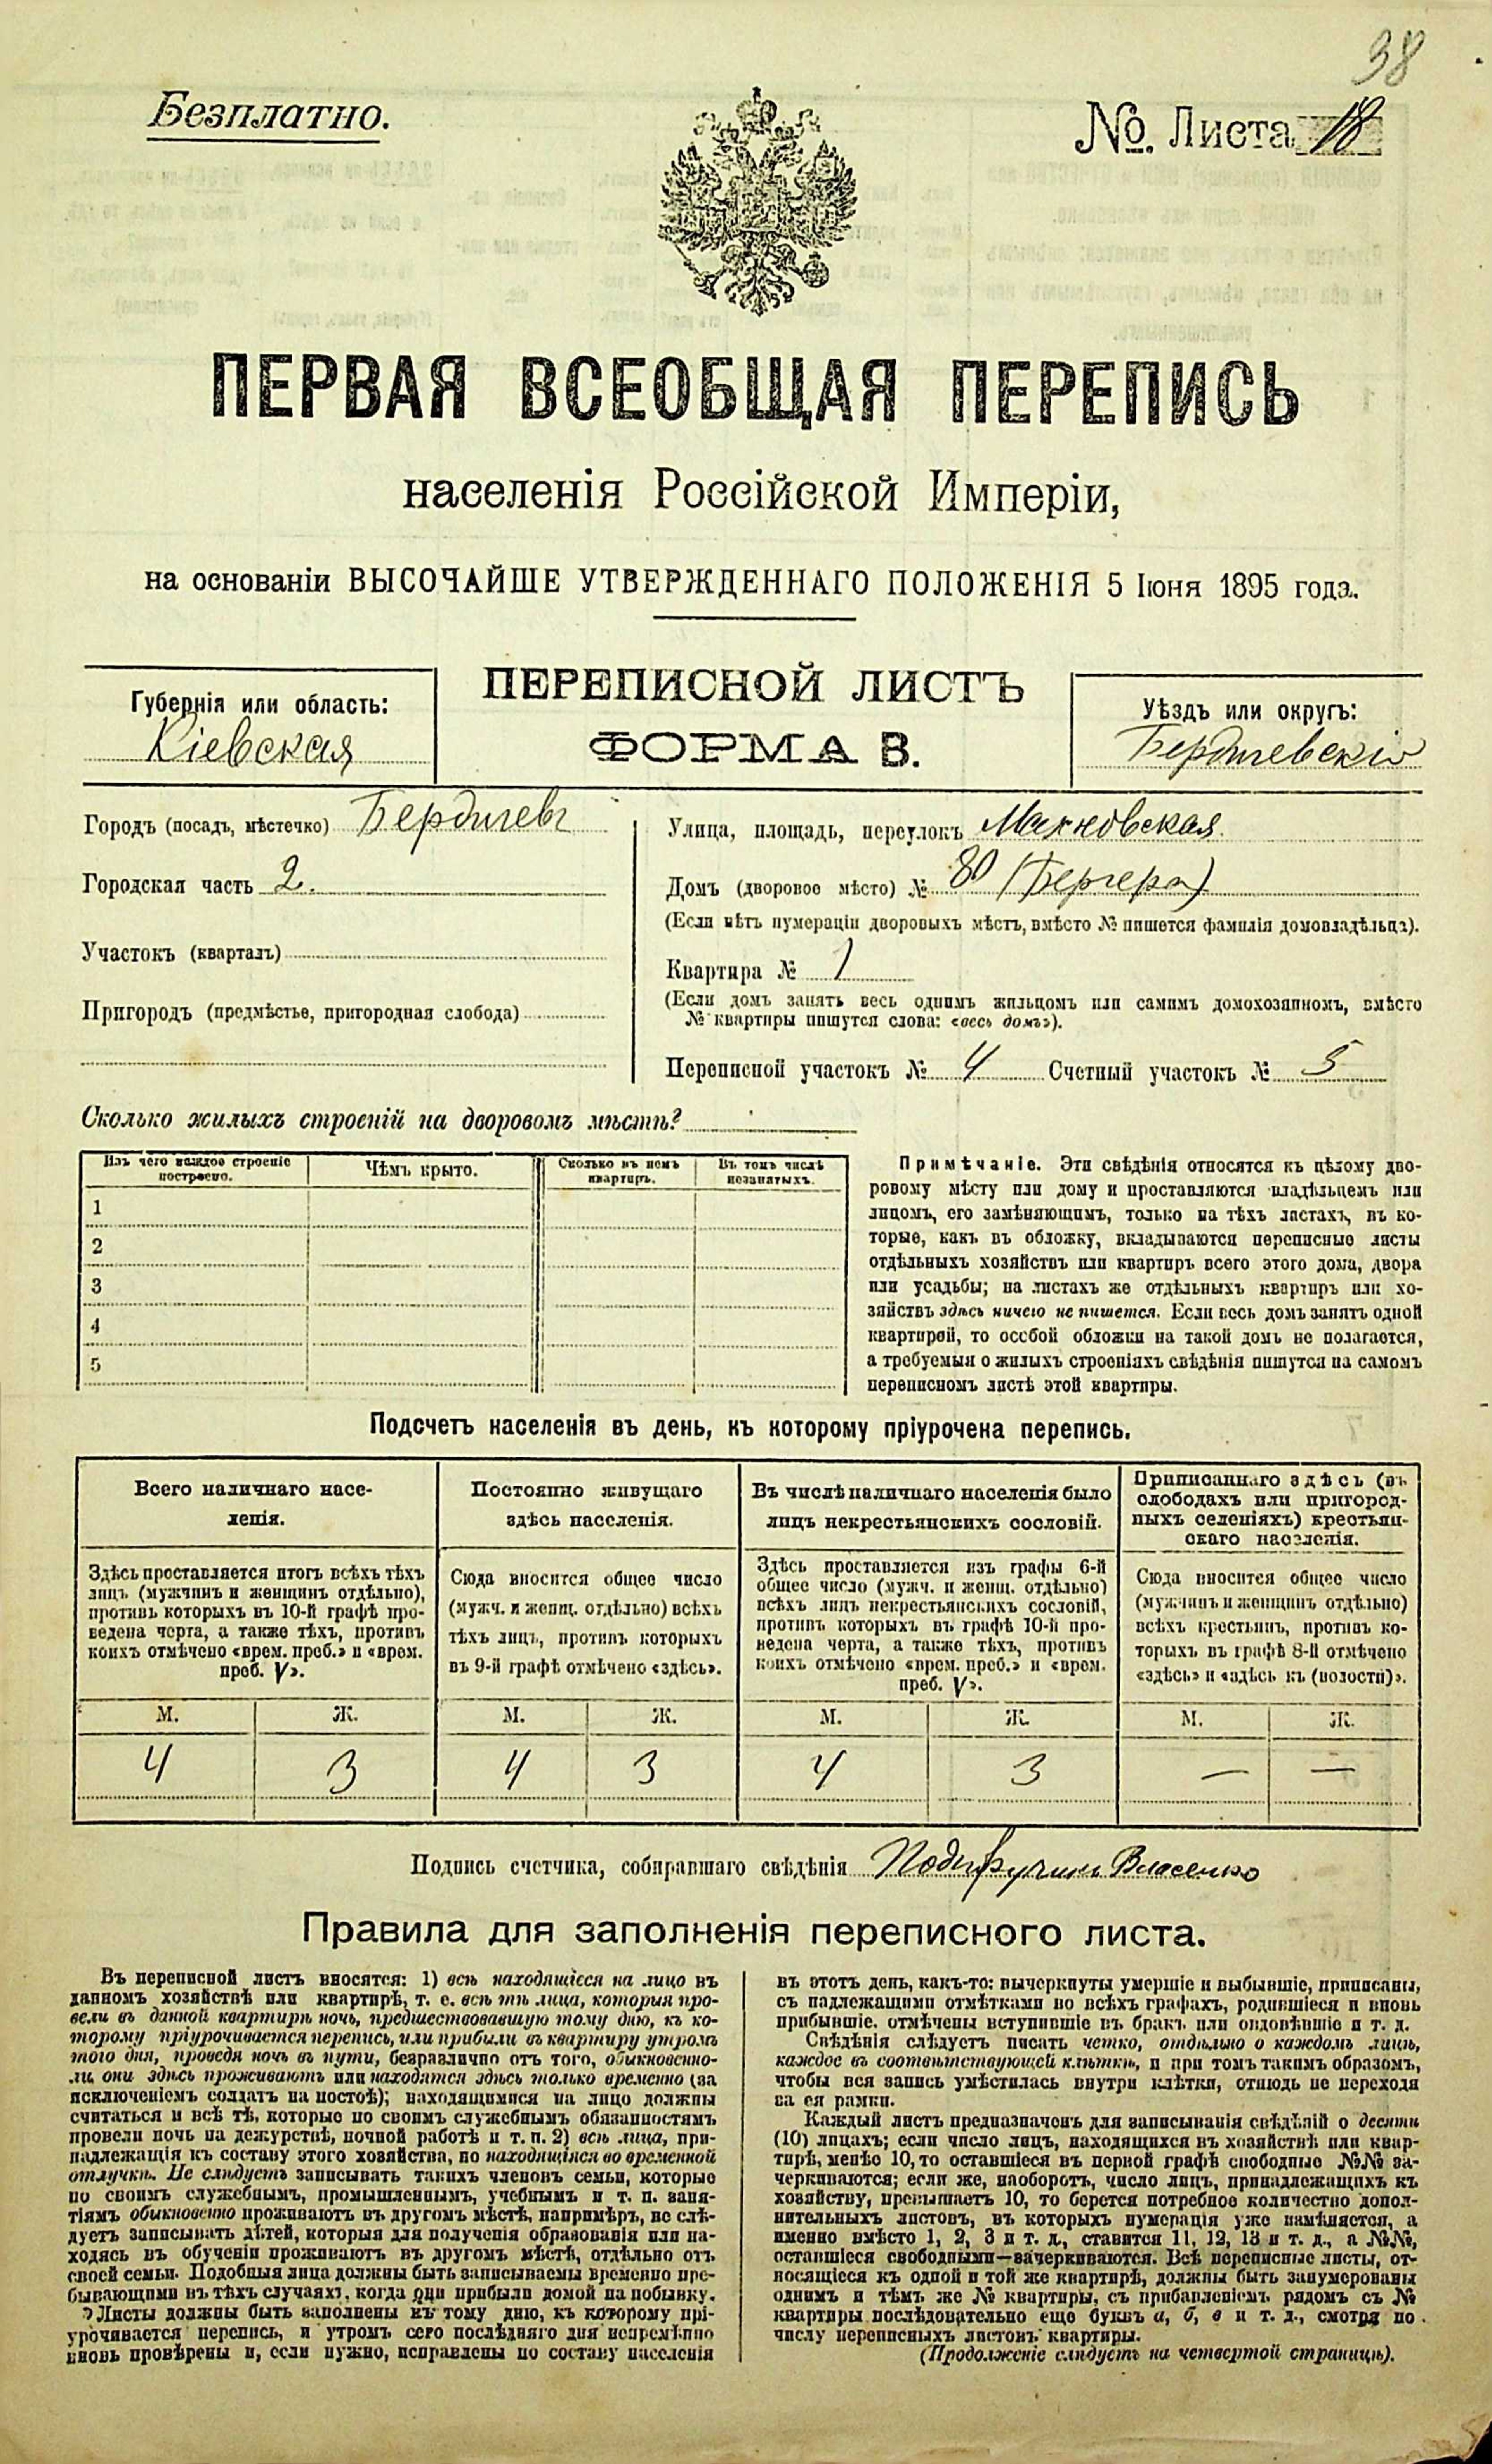 38
Безплатно.
№ Листа 18
ПЕРВАЯ ВСЕОБЩАЯ ПЕРЕПИСЬ
населенія Россійской Имперіи,
на основаніи ВЫСОЧАЙШЕ УТВЕРЖДЕННАГО ПОЛОЖЕНІЯ 5 Іюня 1895 года.
Губернія или область:
Кіевская
ПЕРЕПИСНОЙ ЛИСТЪ
ФОРМА В.
Уѣздъ или округъ:
Бердичевскій
Городъ (посадъ, мѣстечко) Бердичевъ
Городская часть 2.
Участокъ (кварталъ)
Пригородъ (предмѣстье, пригородная слобода)
Улица, площадь, переулокъ Махновская
Домъ (дворовое мѣсто) № 80 (Бергера)
(Если нѣтъ нумераціи дворовыхъ мѣстъ, вмѣсто № пишется фамилія домовладѣльца).
Квартира № 1
(Если домъ занятъ весь однимъ жильцомъ или самимъ домохозяиномъ, вмѣсто
№ квартиры пишутся слова: «весь домъ»).
Переписной участокъ № 4 Счетный участокъ № 5
Сколько жилыхъ строеній на дворовомъ мѣстѣ?
Изъ чего каждое строеніе построено.
Чѣмъ крыто.
Сколько въ немъ квартиръ.
Въ томъ числѣ незанятыхъ.
1
2
3
4
5
Примѣчаніе. Эти свѣдѣнія относятся къ цѣлому дво-
ровому мѣсту или дому и проставляются владѣльцемъ или
лицомъ, его замѣняющимъ, только на тѣхъ листахъ, въ ко-
торые, какъ въ обложку, вкладываются переписные листы
отдѣльныхъ хозяйствъ или квартиръ всего этого дома, двора
или усадьбы; на листахъ же отдѣльныхъ квартиръ или хо-
зяйствъ здѣсь ничего не пишется. Если весь домъ занятъ одной
квартирой, то особой обложки на такой домъ не полагается,
а требуемыя о жилыхъ строеніяхъ свѣдѣнія пишутся на самомъ
переписномъ листѣ этой квартиры.
Подсчетъ населенія въ день, къ которому пріурочена перепись.
Всего наличнаго насе-
ленія.
Здѣсь проставляется итогъ всѣхъ тѣхъ
лицъ (мужчинъ и женщинъ отдѣльно),
противъ которыхъ въ 10-й графѣ про-
ведена черта, а также тѣхъ, противъ
коихъ отмѣчено «врем. преб.» и «врем.
преб. V».
Постоянно живущаго
здѣсь населенія.
Сюда вносится общее число
(мужч. и женщ. отдѣльно) всѣхъ
тѣхъ лицъ, противъ которыхъ
въ 9-й графѣ отмѣчено «здѣсь».
Въ числѣ наличнаго населенія было
лицъ некрестьянскихъ сословій.
Здѣсь проставляется изъ графы 6-й
общее число (мужч. и женщ. отдѣльно)
всѣхъ лицъ некрестьянскихъ сословій,
противъ которыхъ въ графѣ 10-й про-
ведена черта, а также тѣхъ, противъ
коихъ отмѣчено «врем. преб.» и «врем.
преб. V».
Приписаннаго здѣсь (въ
слободахъ или пригород-
ныхъ селеніяхъ) крестьян-
скаго населенія.
Сюда вносится общее число
(мужчинъ и женщинъ отдѣльно)
всѣхъ крестьянъ, противъ ко-
торыхъ въ графѣ 8-й отмѣчено
«здѣсь» и «здѣсь къ (волости)».
М. Ж. М. Ж. М. Ж. М. Ж.
4 3 4 3 4 3 — —
Подпись счетчика, собиравшаго свѣдѣнія Власенко
Правила для заполненія переписного листа.
Въ переписной листъ вносятся: 1) всѣ находящіеся на лицо въ
данномъ хозяйствѣ или квартирѣ, т. е. всѣ тѣ лица, которыя про-
вели въ данной квартирѣ ночь, предшествовавшую тому дню, къ ко-
торому пріурочивается перепись, или прибыли въ квартиру утромъ
того дня, проведя ночь въ пути, безразлично отъ того, обыкновенно-
ли они здѣсь проживаютъ или находятся здѣсь только временно (за
исключеніемъ солдатъ на постоѣ); находящимися на лицо должны
считаться и всѣ тѣ, которые по своимъ служебнымъ обязанностямъ
провели ночь на дежурствѣ, ночной работѣ и т. п. 2) всѣ лица, при-
надлежащія къ составу этого хозяйства, но находящіяся во временной
отлучкѣ. Не слѣдуетъ записывать такихъ членовъ семьи, которые
по своимъ служебнымъ, промышленнымъ, учебнымъ и т. п. заня-
тіямъ обыкновенно проживаютъ въ другомъ мѣстѣ, напримѣръ, не слѣ-
дуетъ записывать дѣтей, которыя для полученія образованія или на-
ходясь въ обученіи проживаютъ въ другомъ мѣстѣ, отдѣльно отъ
своей семьи. Подобныя лица должны быть записываемы временно пре-
бывающими въ тѣхъ случаяхъ, когда они прибыли домой на побывку.
Листы должны быть заполнены къ тому дню, къ которому прі-
урочивается перепись, и утромъ сего послѣдняго дня непремѣнно
вновь провѣрены и, если нужно, исправлены по составу населенія
въ этотъ день, какъ-то: вычеркнуты умершіе и выбывшіе, приписаны,
съ надлежащими отмѣтками во всѣхъ графахъ, родившіеся и вновь
прибывшіе, отмѣчены вступившіе въ бракъ или овдовѣвшіе и т. д.
Свѣдѣнія слѣдуетъ писать четко, отдѣльно о каждомъ лицѣ,
каждое въ соотвѣтствующей клѣткѣ, и при томъ такимъ образомъ,
чтобы вся запись умѣстилась внутри клѣтки, отнюдь не переходя
за ея рамки.
Каждый листъ предназначенъ для записыванія свѣдѣній о десяти
(10) лицахъ; если число лицъ, находящихся въ хозяйствѣ или квар-
тирѣ, менѣе 10, то оставшіеся въ первой графѣ свободные №№ за-
черкиваются; если же, наоборотъ, число лицъ, принадлежащихъ къ
хозяйству, превышаетъ 10, то берется потребное количество допол-
нительныхъ листовъ, въ которыхъ нумерація уже измѣняется, а
именно вмѣсто 1, 2, 3 и т. д., ставится 11, 12, 13 и т. д., а №№,
оставшіеся свободными—зачеркиваются. Всѣ переписные листы, от-
носящіеся къ одной и той же квартирѣ, должны быть занумерованы
однимъ и тѣмъ же № квартиры, съ прибавленіемъ рядомъ съ №
квартиры послѣдовательно еще буквъ а, б, в и т. д., смотря по
числу переписныхъ листовъ квартиры.
(Продолженіе слѣдуетъ на четвертой страницѣ).